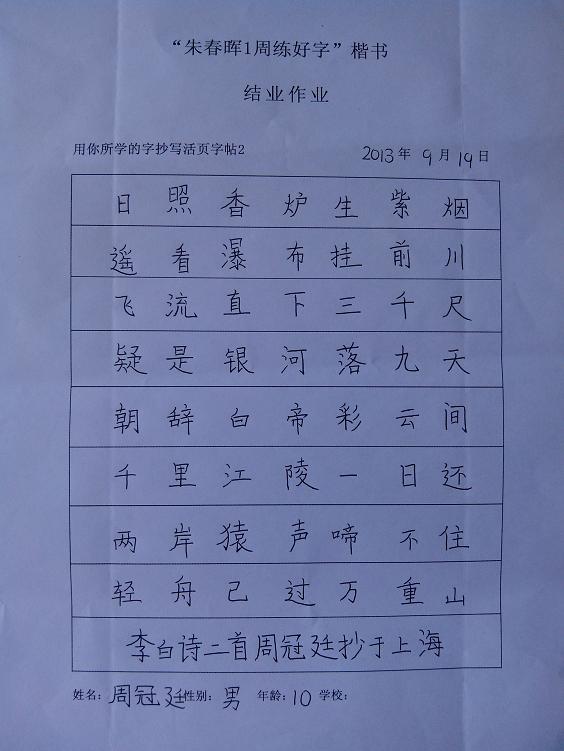 “朱春晖1周练好字”楷书
结业作业
用你所学的字抄写活页字帖2 2013年 9月19日
日照香炉生紫烟
遥看瀑布挂前川
飞流直下三千尺
疑是银河落九天
朝辞白帝彩云间
千里江陵一日还
两岸猿声啼不住
轻舟己过万重山
李白诗二首周冠廷抄于上海
姓名:周冠廷性别:男 年龄:10 学校: